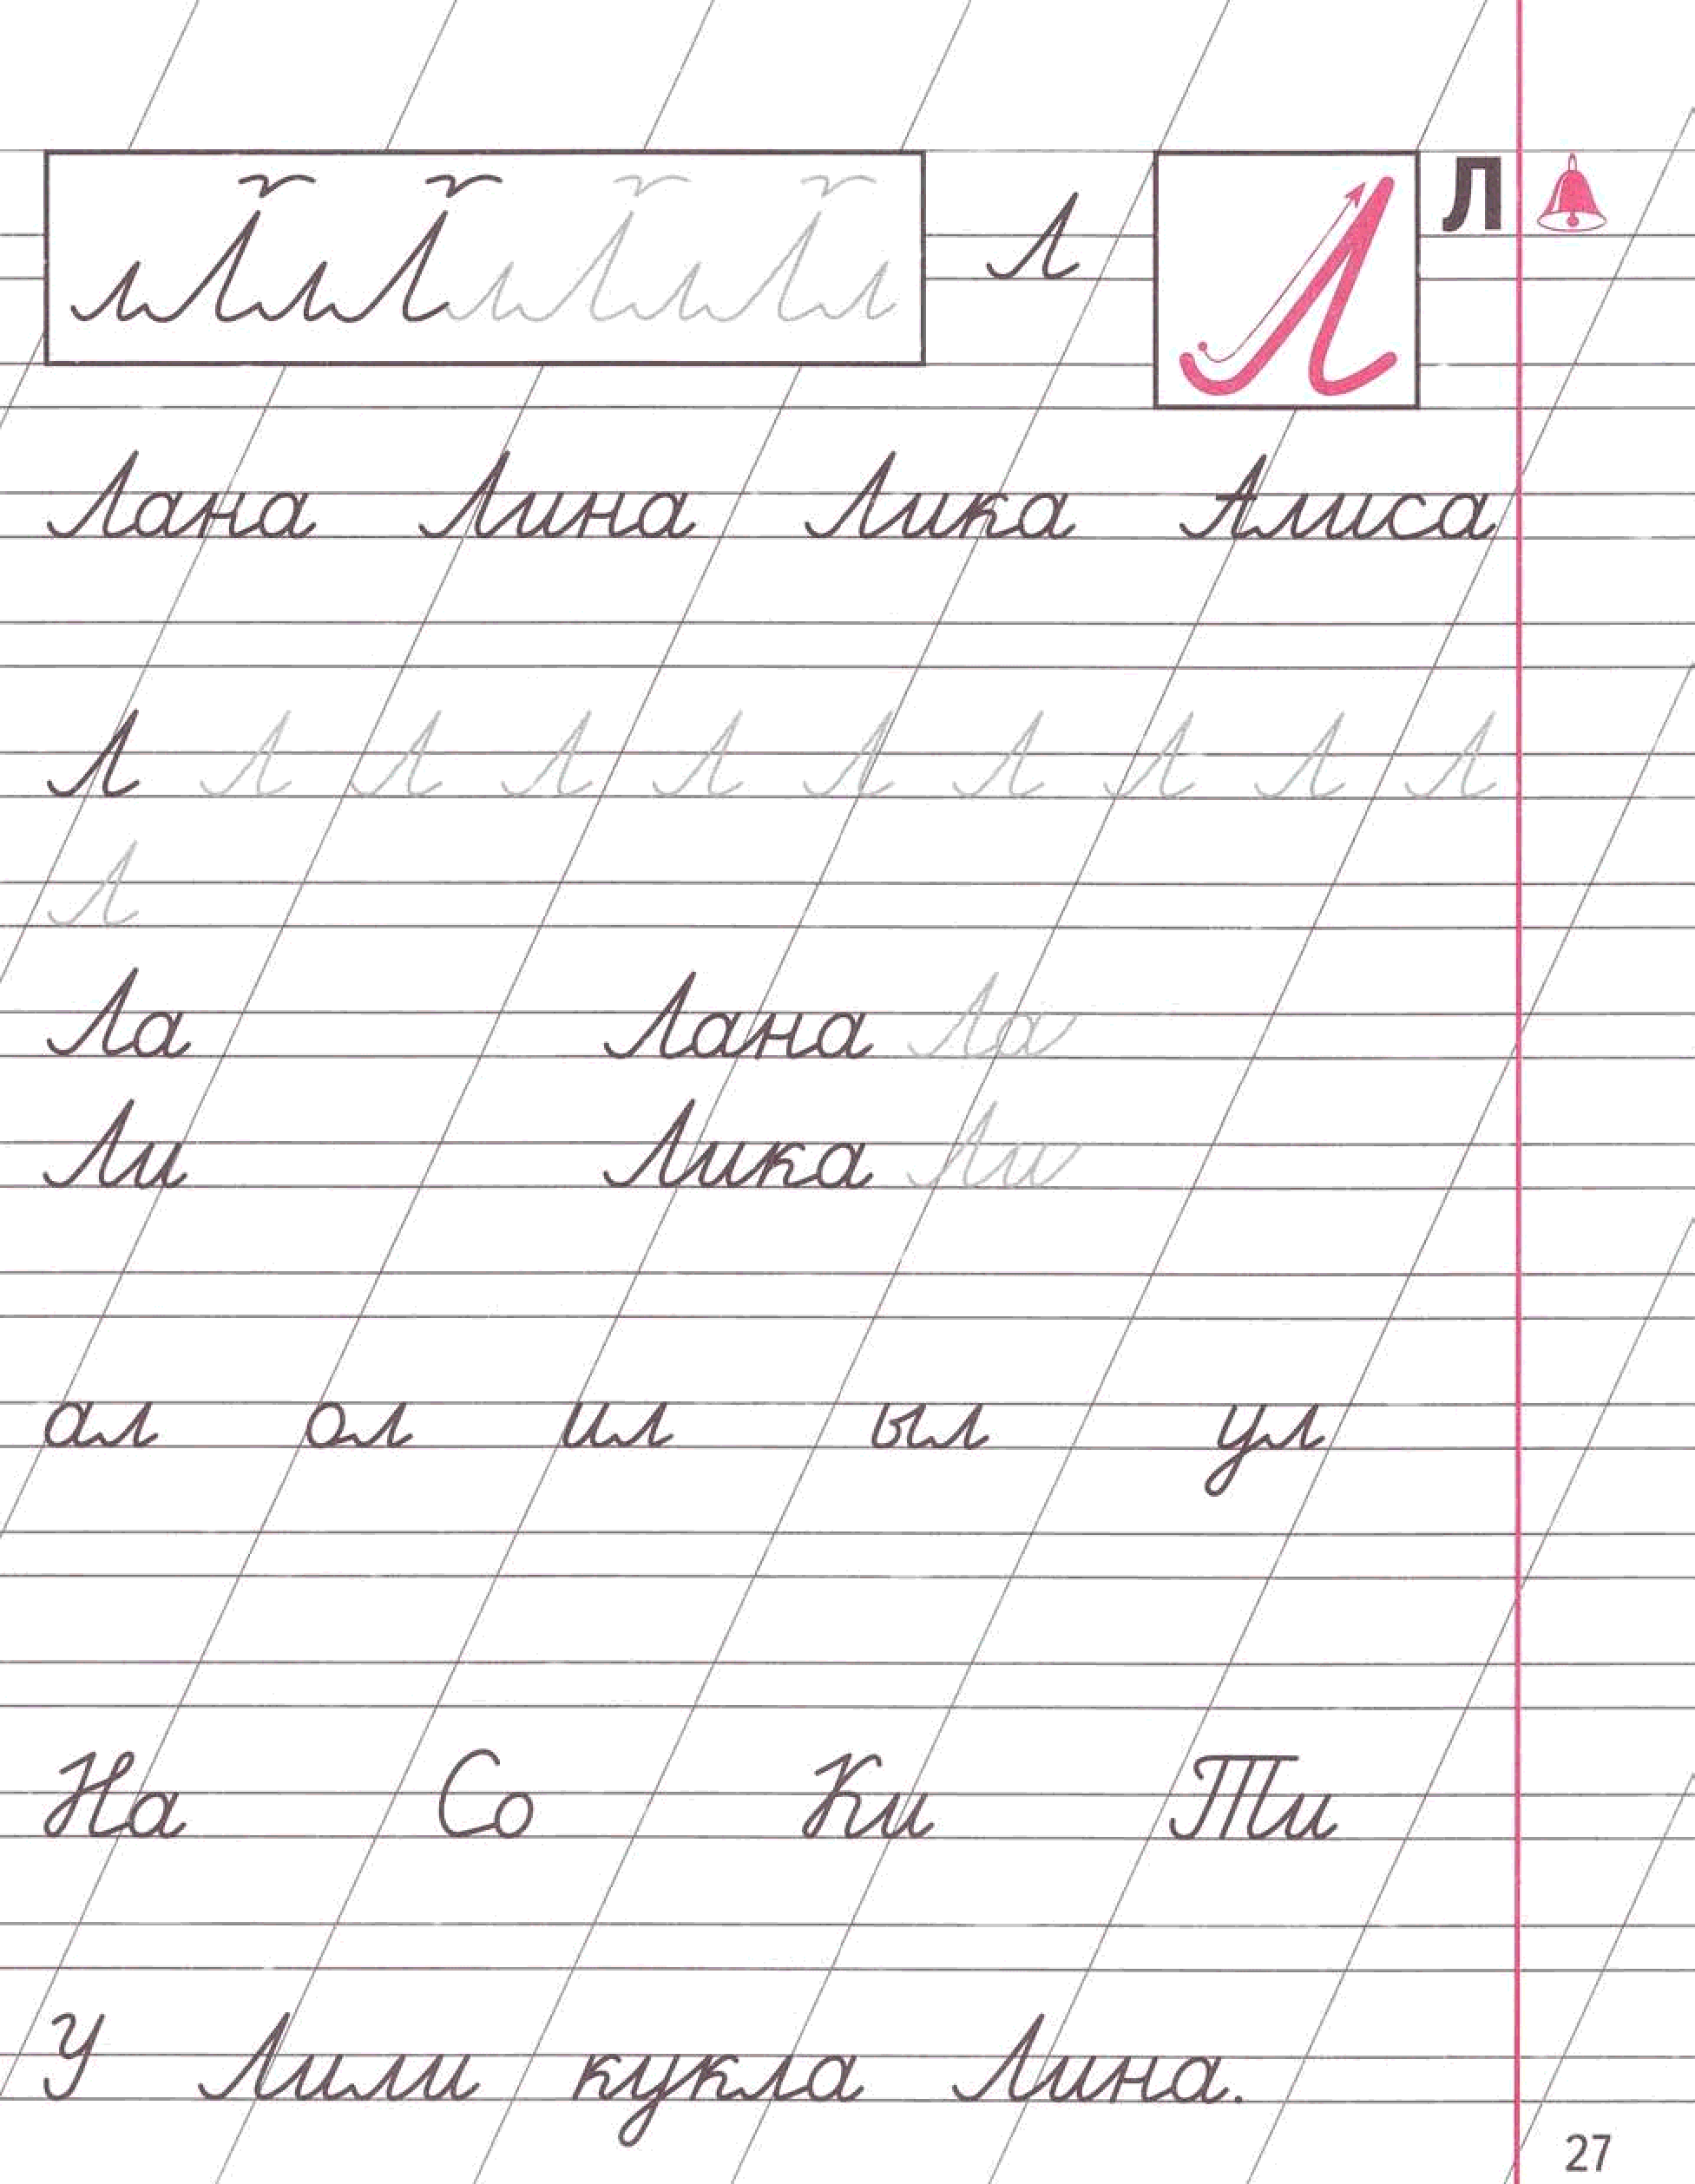 Л Л Л
Лана Лина Лика Алиса
Л Л Л Л Л Л Л Л Л Л
Л
Ла Лана Ла
Ли Лика Ли
ал ол ил ыл ул
На Со Ки Ти
У Лили кукла Лина.
27